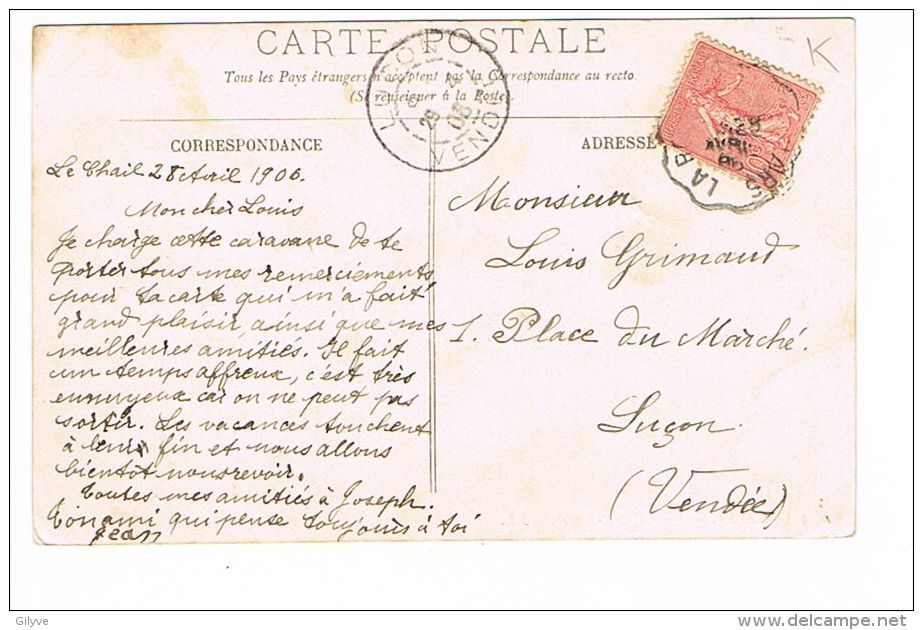 CARTE POSTALE
Tous les Pays étrangers n'acceptent pas la Correspondance au recto
(Se renseigner à la Poste)
CORRESPONDANCE
Le Chail 28 Avril 1906.
Mon cher Louis
Je charge cette caravane de te
porter tous mes remerciements
pour ta carte qui m'a fait
grand plaisir, ainsi que mes
meilleures amitiés. Il fait
un temps affreux, c'est très
ennuyeux car on ne peut pas
sortir. Les vacances touchent
à leur fin et nous allons
bientôt nous revoir.
Toutes mes amitiés à Joseph.
Ton ami qui pense toujours à toi
Jean
ADRESSE
Monsieur
Louis Grimaud
1. Place du Marché.
Luçon
(Vendée)
LUÇON
VENDÉE
K
Gilyve
www.delcampe.net